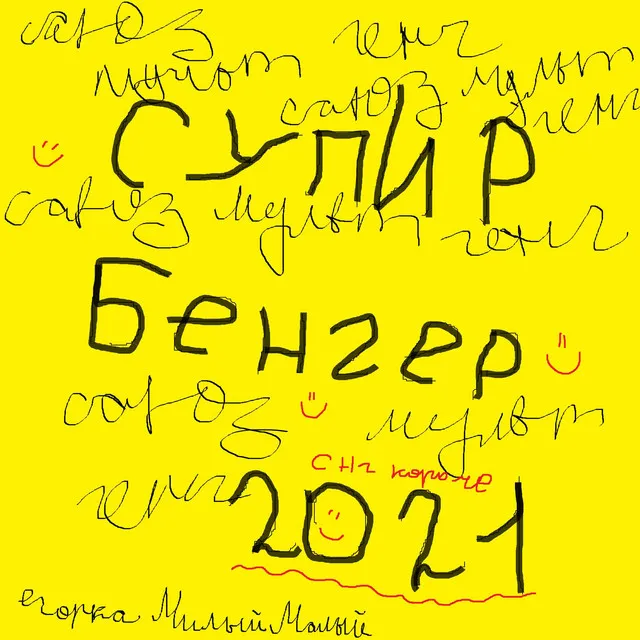 саюз генг
мульт саюз мульт генг
СУПИР
саюз мульт генг
Бенгер
саюз мульт
снг короче
генг 2021
егорка Милый Малый